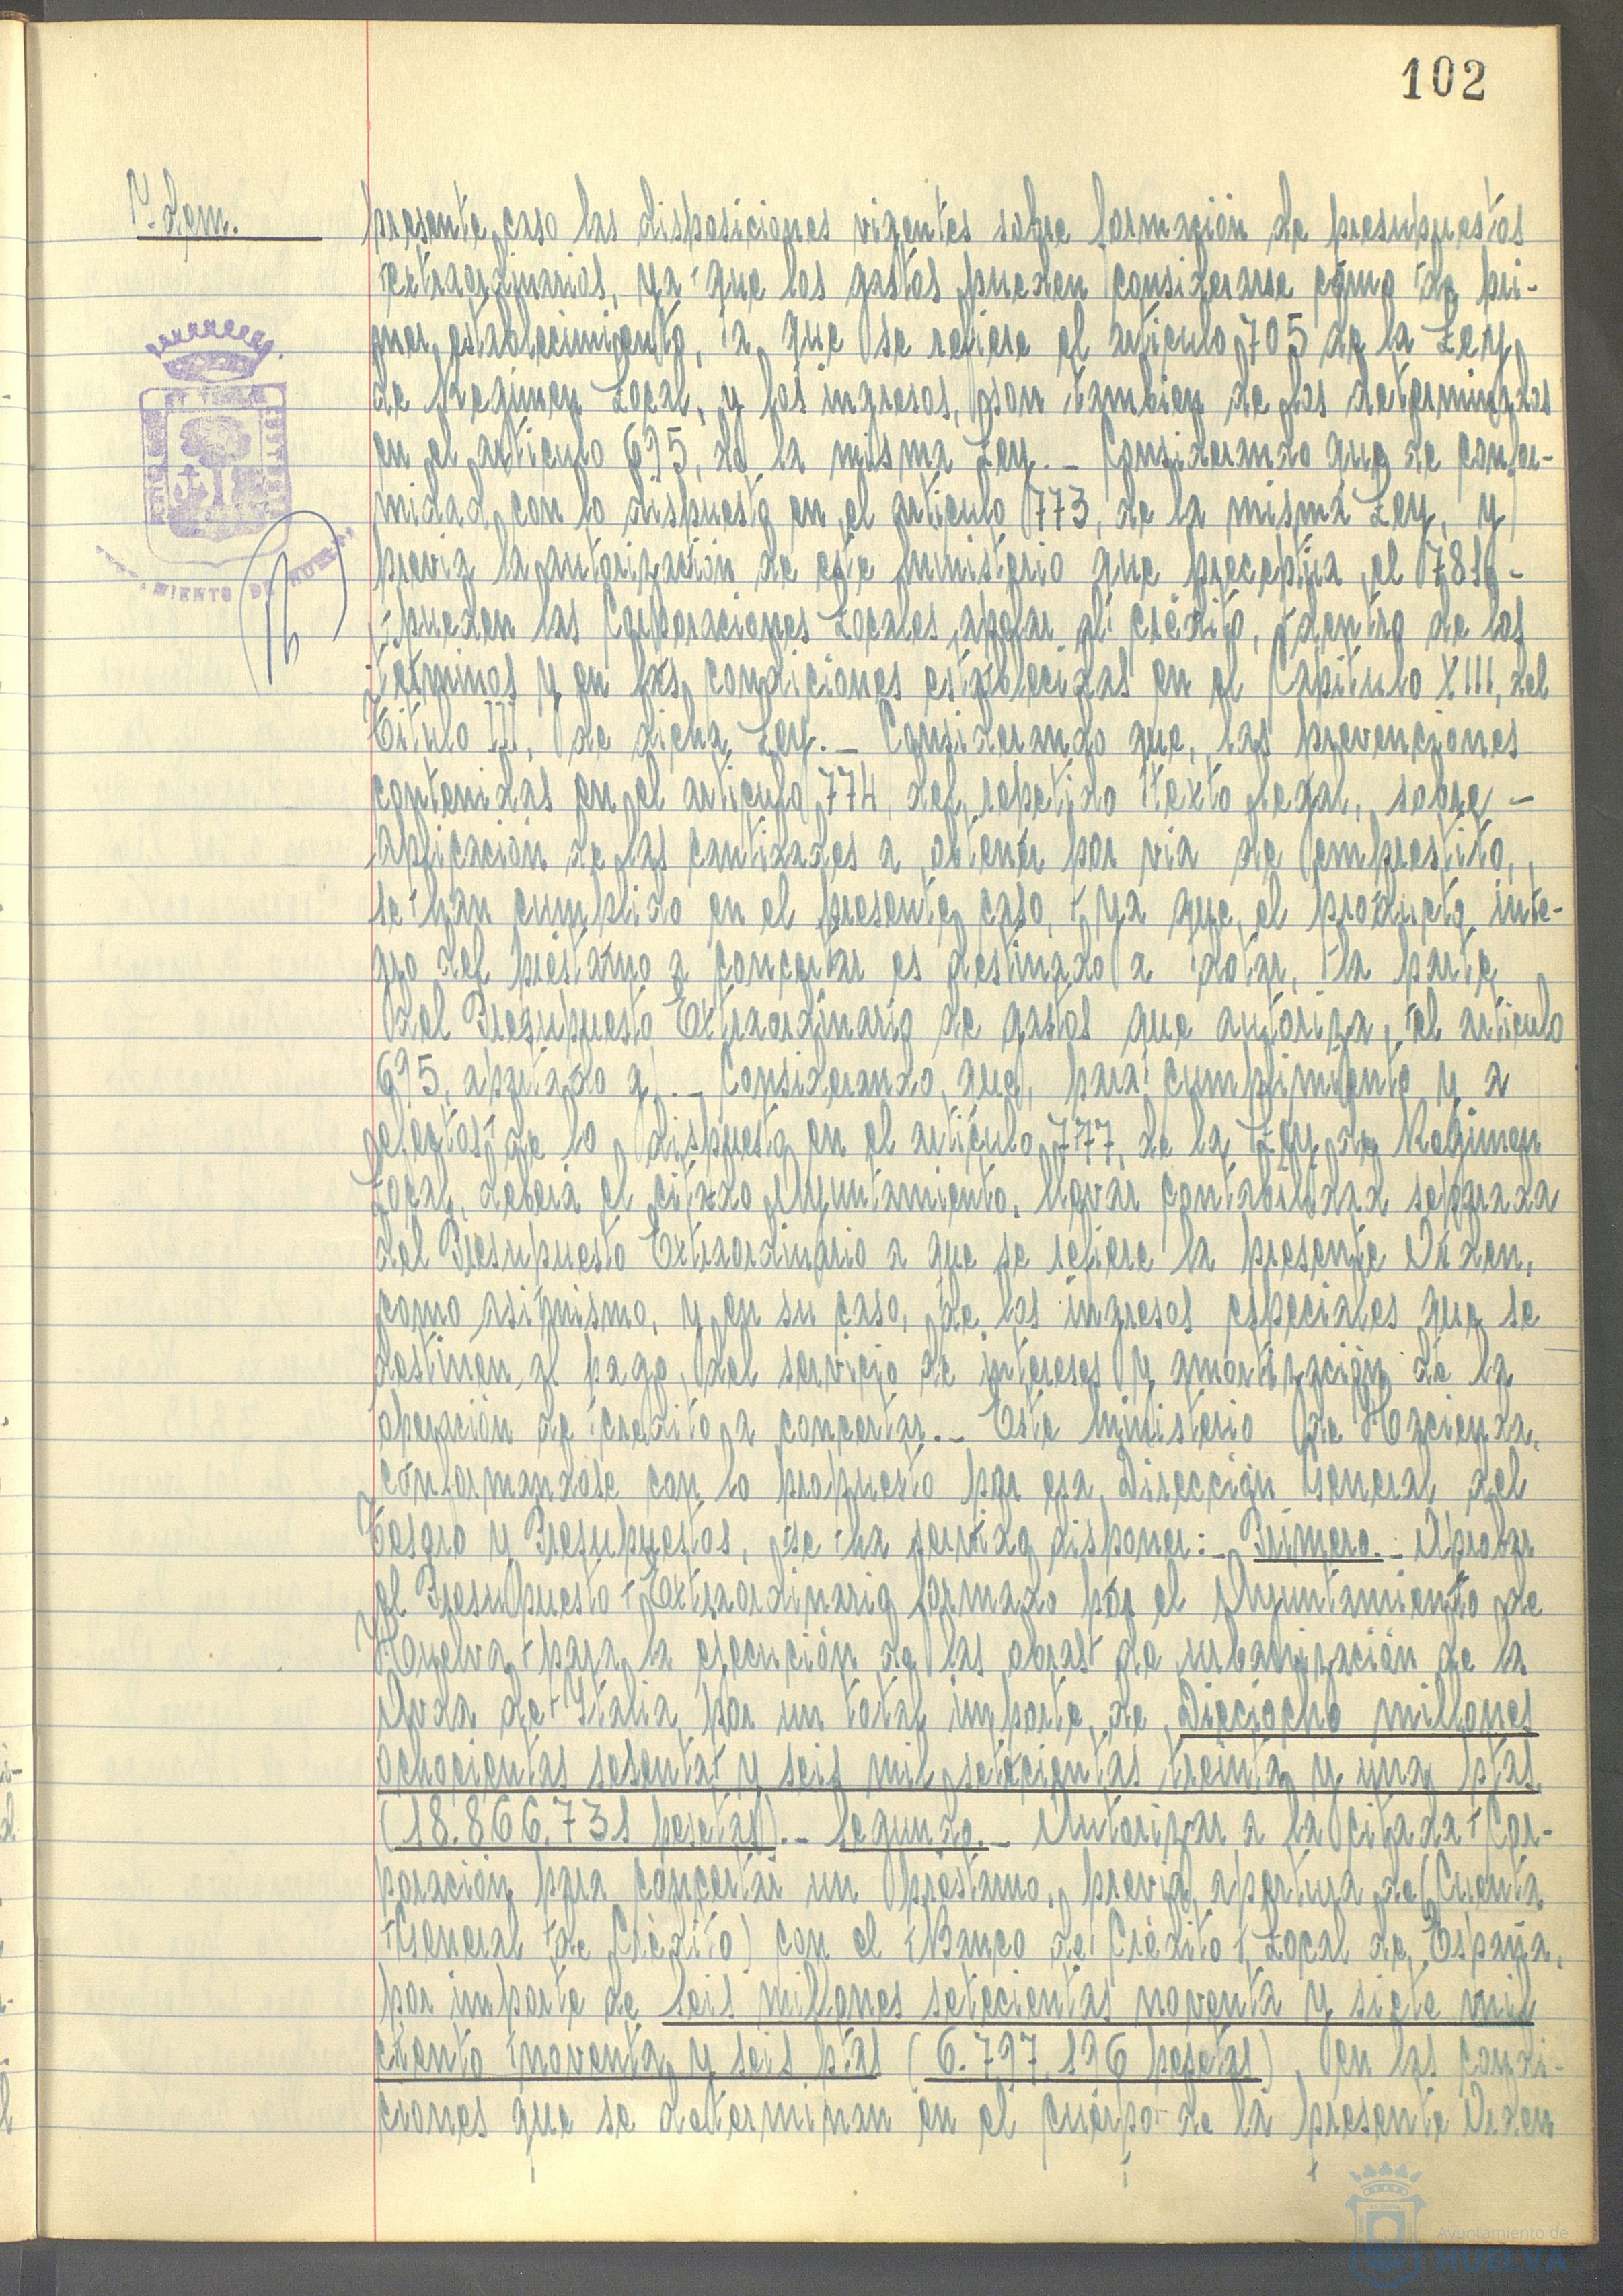 102
Y-dem.
presente caso las disposiciones vigentes sobre formación de presupuestos
extraordinarios, ya que los gastos pueden considerarse como de pri-
mer establecimiento, a que se refiere el artículo 705 de la Ley
de Régimen Local, y los ingresos, son tambien de los determinados
en el artículo 695, de la misma Ley.- Considerando que de confor-
midad con lo dispuesto en el artículo 773, de la misma Ley, y
previa la autorización de este Ministerio que preceptúa el 781,-
pueden las Corporaciones Locales apelar al crédito, dentro de los
términos y en las condiciones establecidas en el Capítulo XIII, del
Título III, de dicha Ley.- Considerando que, las prevenciones
contenidas en el artículo 774, del repetido texto legal, sobre -
aplicación de las cantidades a obtener por vía de empréstito,
se han cumplido en el presente caso, ya que, el producto ínte-
gro del préstamo a concertar es destinado a dotar, la parte
del Presupuesto Extraordinario de gastos que autoriza, el artículo
695, apartado a).- Considerando, que, para cumplimiento y a
efectos de lo dispuesto en el artículo 777, de la Ley de Régimen
Local, deberá el citado Ayuntamiento, llevar contabilidad separada
del Presupuesto Extraordinario a que se refiere la presente Orden,
como asimismo, y en su caso, de los ingresos especiales que se
destinen al pago, del servicio de intereses y amortización de la
operación de crédito a concertar.- Este Ministerio de Hacienda,
conformandose con lo propuesto por esa Dirección General del
Tesoro y Presupuestos, se ha servido disponer:- Primero.- Aprobar
el Presupuesto Extraordinario formado por el Ayuntamiento de
Huelva para la ejecución de las obras de urbanización de la
Avda de Italia, por un total importe, de Dieciocho millones
ochocientas sesenta y seis mil setecientas treinta y una ptas
(18.866,731 pesetas).- Segundo.- Autorizar a la citada Cor-
poración para concertar un préstamo, previa apertura de (Cuenta
General de Crédito) con el Banco de Crédito Local de España,
por importe de seis millones setecientas noventa y siete mil
ciento noventa y seis ptas (6.797.196 pesetas), en las condi-
ciones que se determinan en el cuerpo de la presente Orden
Ayuntamiento de
HUELVA